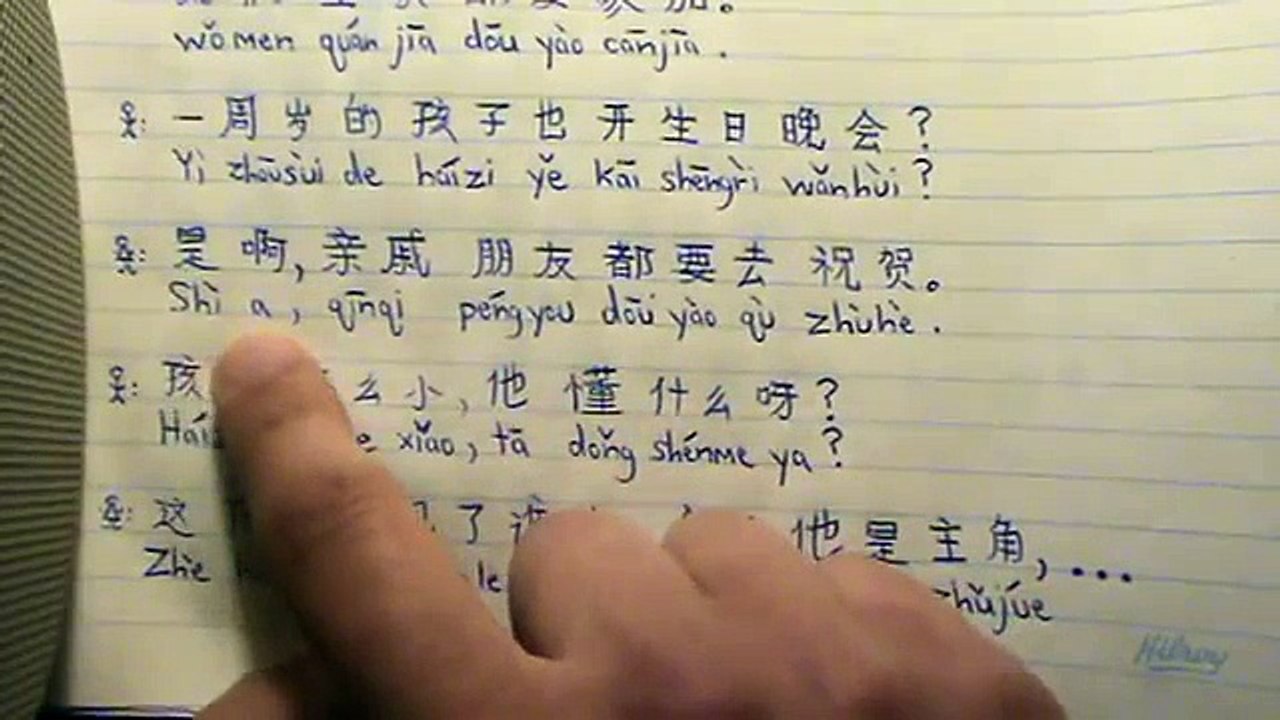 wǒ men quán jiā dōu yào cānjiā .
一周岁的孩子也开生日晚会?
Yì zhōusùi de háizi yě kāi shēngrì wǎnhùi?
是啊,亲戚 朋友都要去 祝贺。
Shì a, qīnqi péngyou dōu yào qù zhùhè .
孩 么小,他 懂 什么呀?
xiǎo, tā dǒng shénme ya?
这 了 他是主角,...
Zhè le zhǔjúe